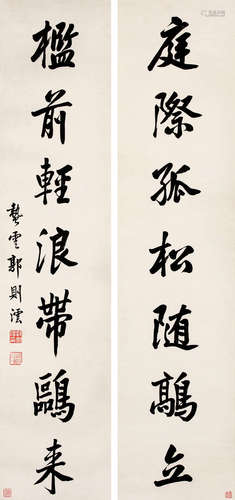 庭際孤松随鸛立
檻前輕浪帶鷗来
蟄雲郭則澐